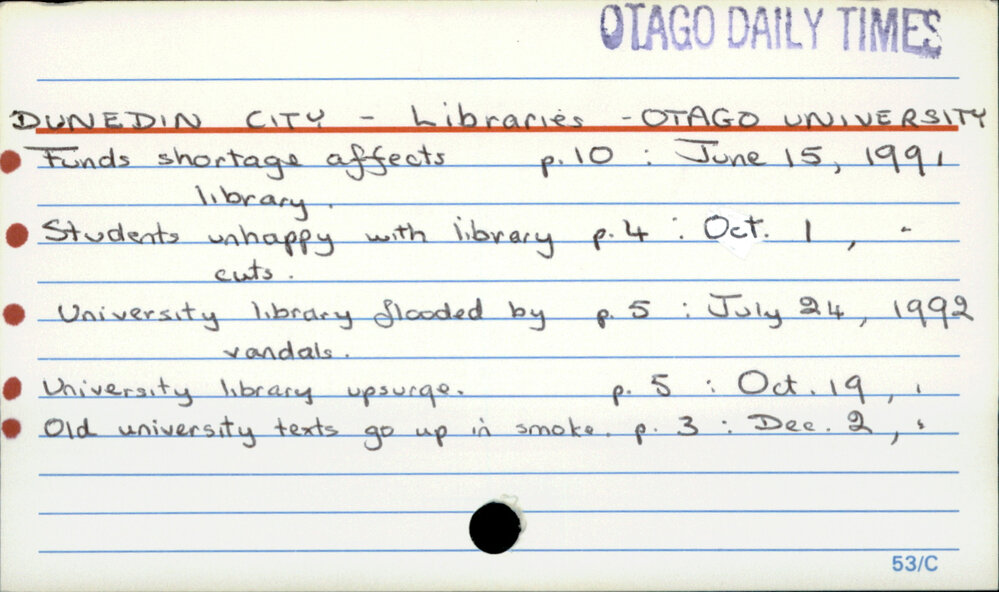 OTAGO DAILY TIMES
DUNEDIN CITY - Libraries - OTAGO UNIVERSITY
Funds shortage affects p. 10 : June 15, 1991
library.
Students unhappy with library p. 4 : Oct. 1, "
cuts.
University library flooded by p. 5 : July 24, 1992
vandals.
University library upsurge. p. 5 : Oct. 19, "
Old university texts go up in smoke. p. 3 : Dec. 2, "
53/C